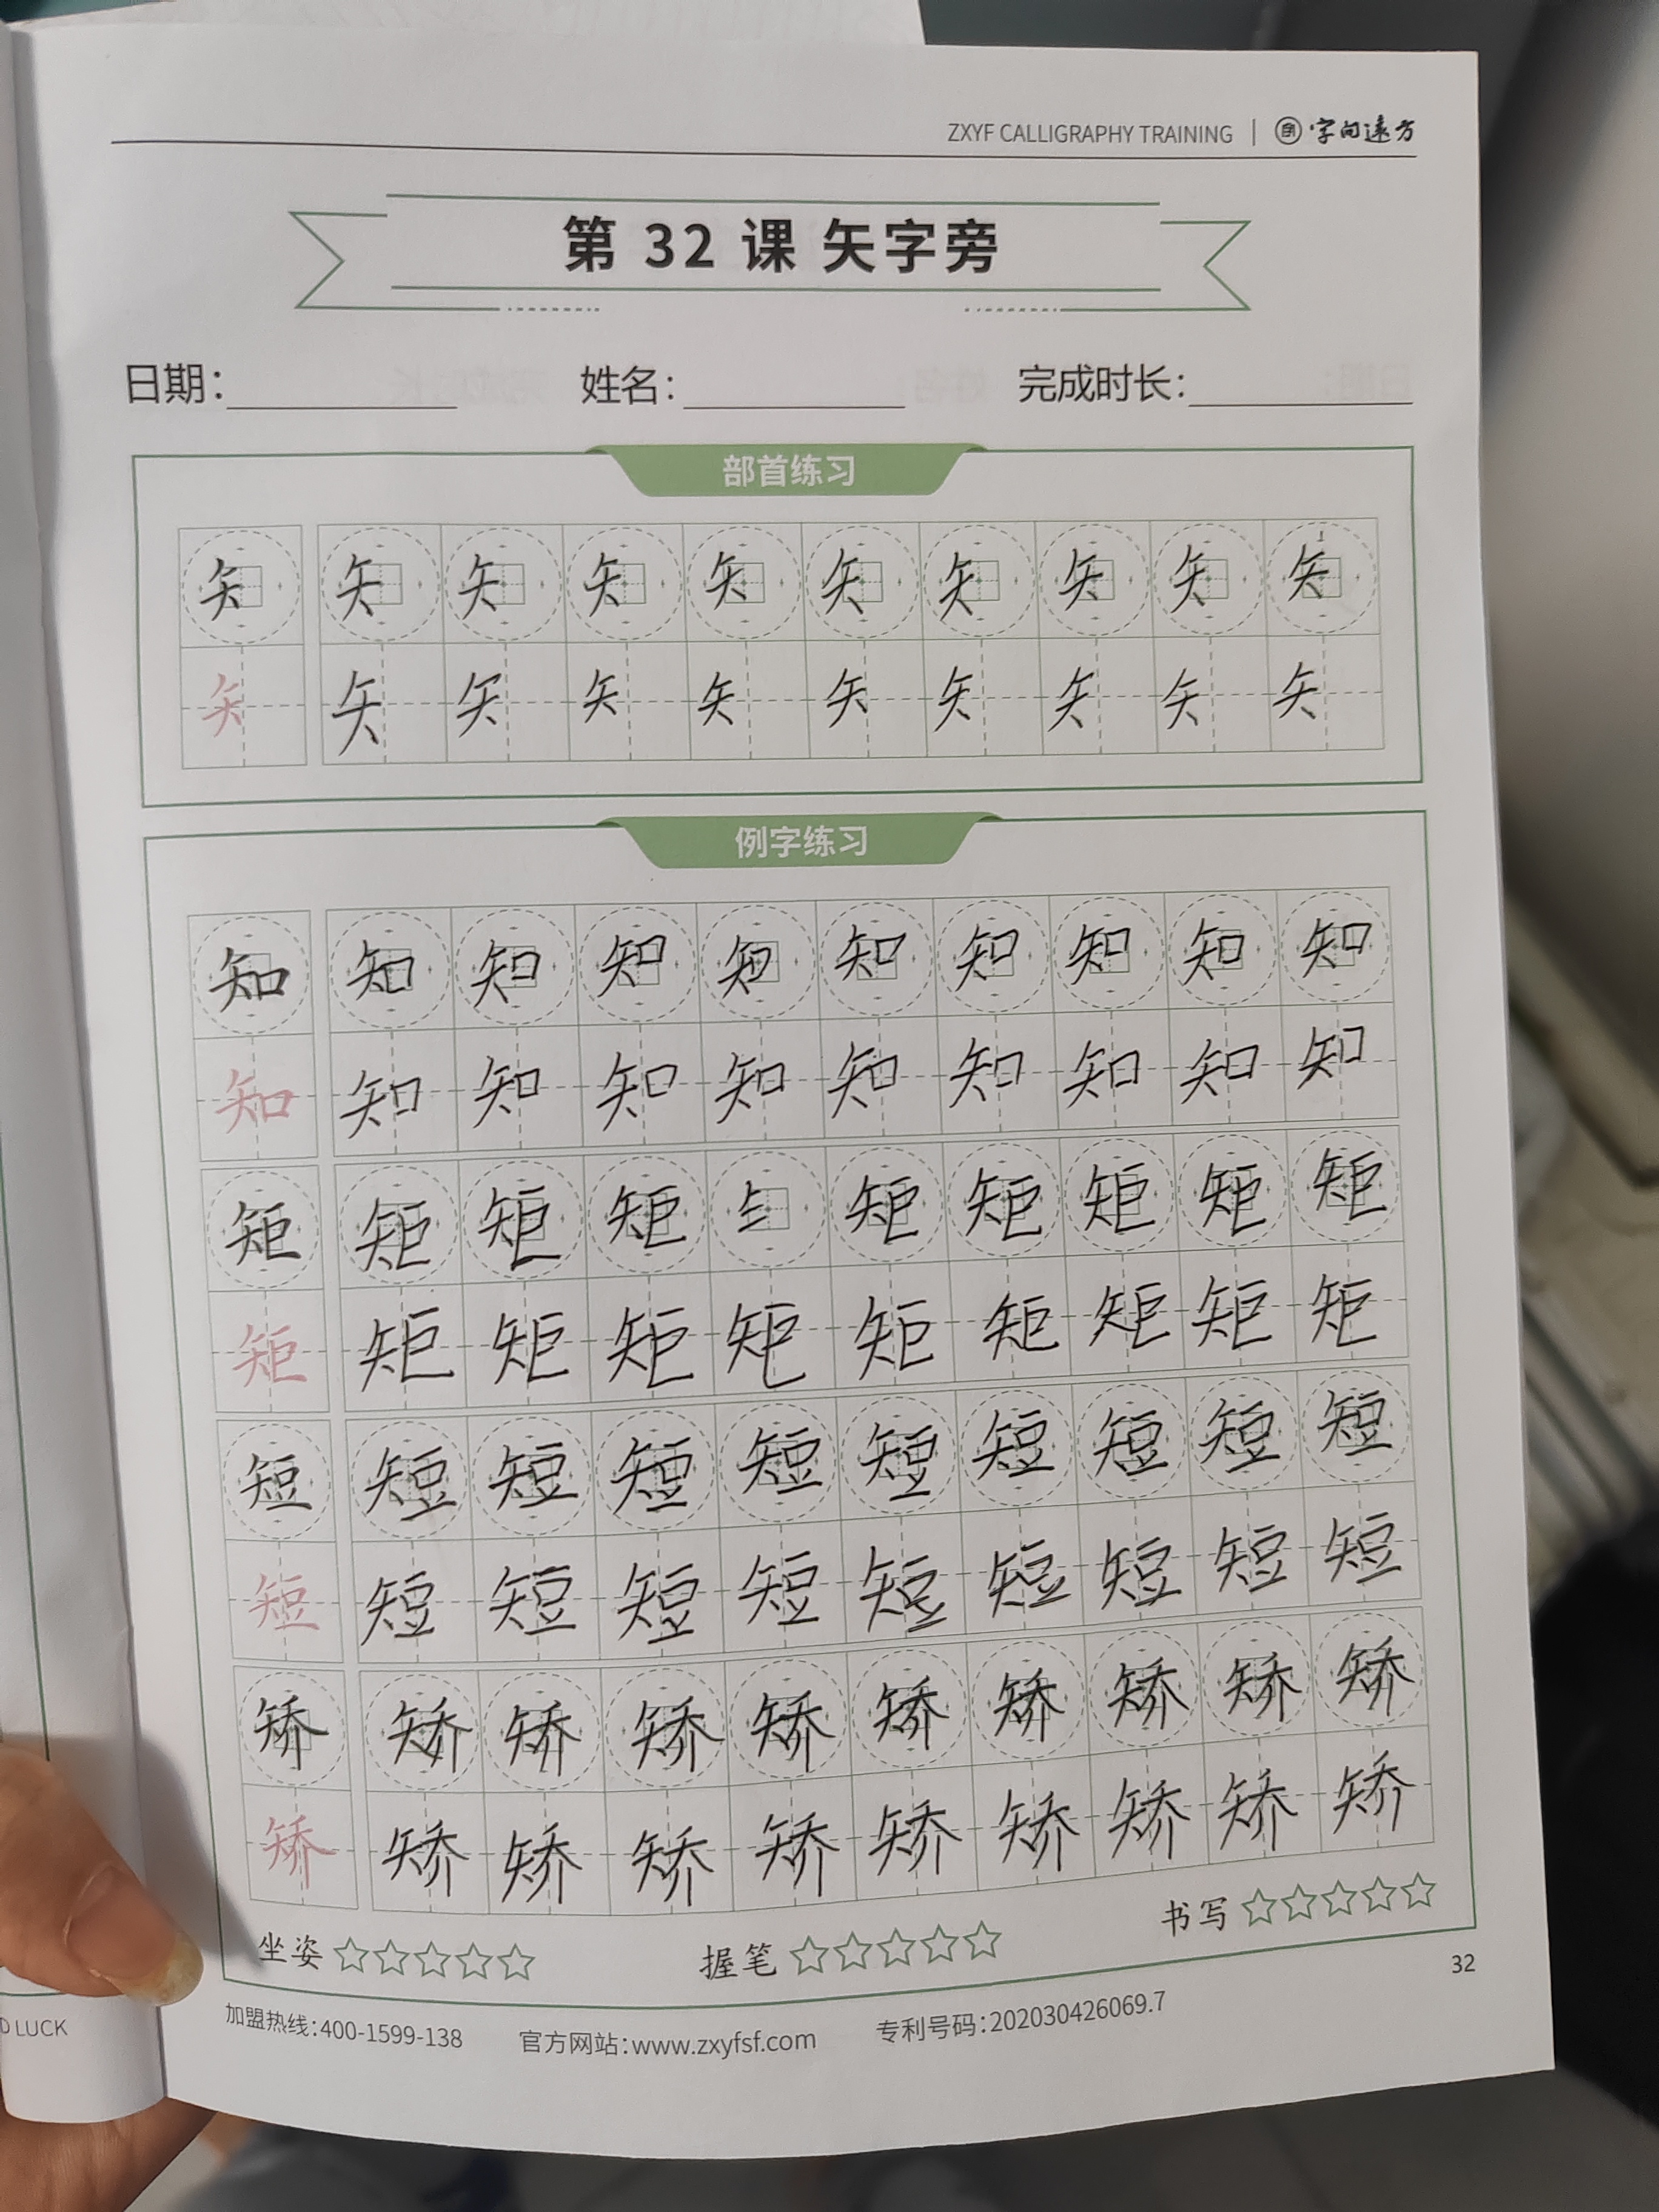 ZXYF CALLIGRAPHY TRAINING | 字间远方
第 32 课 矢字旁
日期： 姓名： 完成时长：
部首练习
矢 矢 矢 矢 矢 矢 矢 矢 矢 矢
矢 矢 矢 矢 矢 矢 矢 矢 矢 矢
例字练习
知 知 知 知 知 知 知 知 知 知
知 知 知 知 知 知 知 知 知 知
矩 矩 矩 矩 矩 矩 矩 矩 矩
矩 矩 矩 矩 矩 矩 矩 矩 矩 矩
短 短 短 短 短 短 短 短 短 短
短 短 短 短 短 短 短 短 短 短
矫 矫 矫 矫 矫 矫 矫 矫 矫 矫
矫 矫 矫 矫 矫 矫 矫 矫 矫 矫
坐姿 ☆☆☆☆☆ 握笔 ☆☆☆☆☆ 书写 ☆☆☆☆☆
32
加盟热线：400-1599-138 官方网站：www.zxyfsf.com 专利号码：202030426069.7
D LUCK